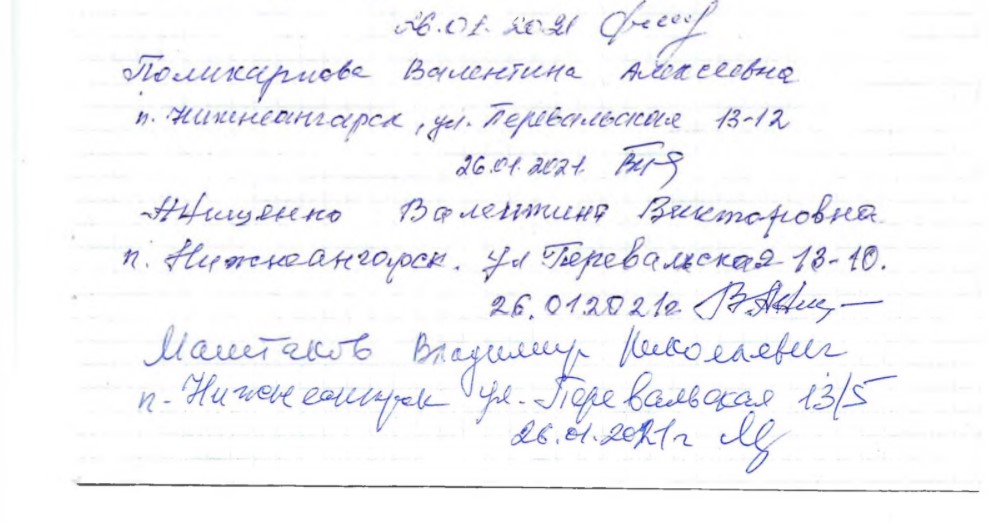 26.01.2021
Поликарпова Валентина Алексеевна
п. Нижнеангарск, ул. Перевальская 13-12
26.01.2021.
Анищенко Валентина Викторовна
п. Нижнеангарск. ул Перевальская 13-10.
26.012021г
Маштаков Владимир Николаевич
п. Нижнеангарск ул. Перевальская 13/5
26.01.2021г